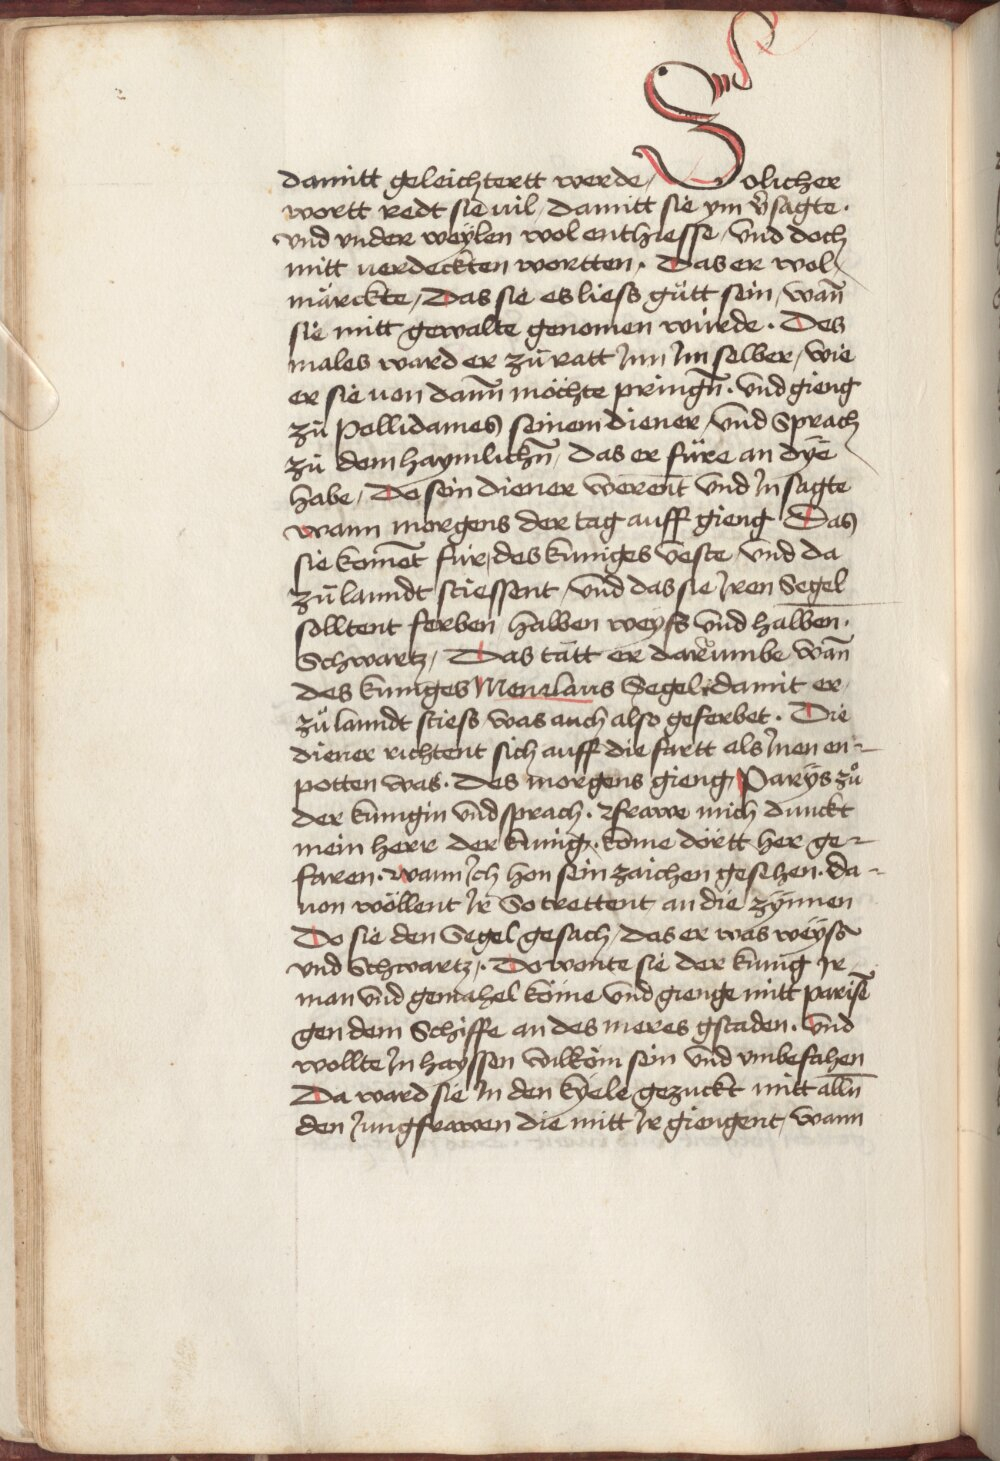 damitt geleichtertt werde / Solicher
wortt redt sie uil / damitt sie ym v̄sagte ·
vnd vnder weÿlen wol enthiesse / vnd doch
mitt uerdeckten wortten · Das er wol
märckte / Das sie es liess gůtt sein / wañ
sie mitt gewalte genomen würde · Des
males ward er zů ratt Jnn Jm selber / wie
er sie uon dann̄ möchte pringn̄ · vnd gieng
zů Pollidames seinem diener / vnd Sprach
zů dem haymlichn̄ / das er füre an dÿe
habe / Do sein diener werent vnd Jn sagte
wann morgens der tag auff gieng Das
sie komēt für des kuniges veste vnd da
zů lanndt stiessent / vnd das sie Jren Segel
solltent ferben halben weyss vnd halben ·
Schwartz / Das tätt er darumbe wañ
des kuniges Menelaus Segel damit er
zů lanndt stiess was auch also geferbet · Die
diener richtent sich auff die fartt als Jnen en-
potten was · Des morgens gieng Parÿs zů
der kunigin vnd sprach · frawe mich dunckt
mein herr der kunig · kome dörtt her ge-
faren · wann Jch hon sein zaichen gesehen · da-
uon wöllent Jr So trettent an die zÿnnen
Do sie den Segel gesach / das er was weÿss
vnd Schwartz · Do wente sie der kunig Jr
man vnd gemahel köme vnd gienge mitt parisē
gen dem Schiffe an des meres gstaden · vnd
wollte Jn hayssen wilkom sein vnd vmbefahen
Da ward sie Jn den kyele gezuckt mitt alln̄
den Jungfrawen die mitt Jr giengent / wann